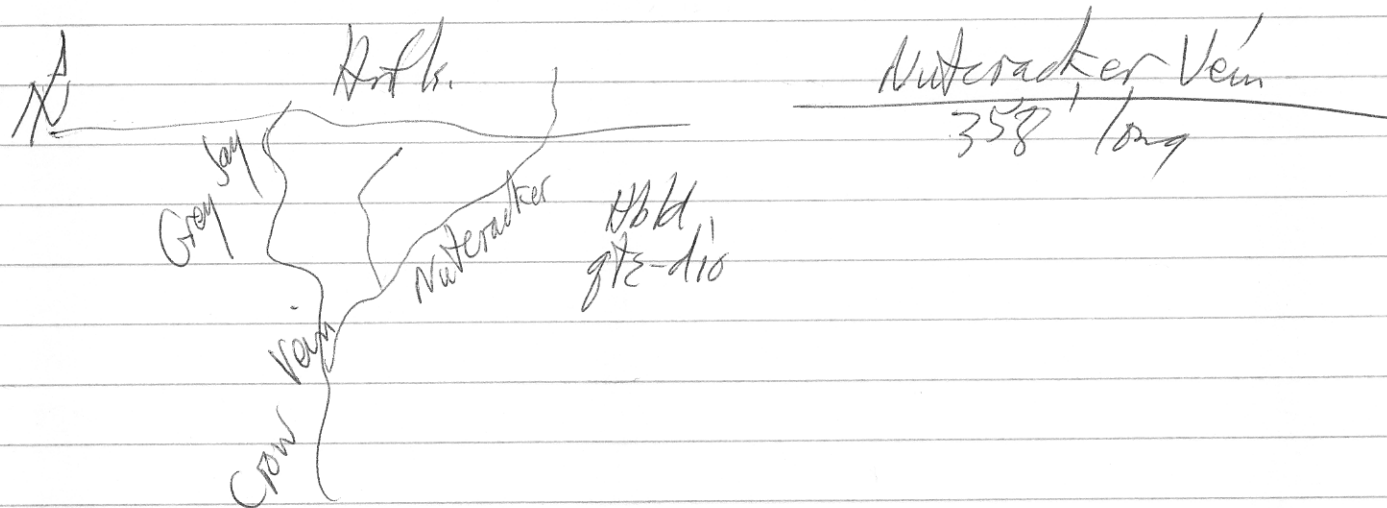 N
Hrfls.
Nutcracker Vein
358' long
Grey Jay
Nutcracker
Hbld
qtz-dio
Crow Vein